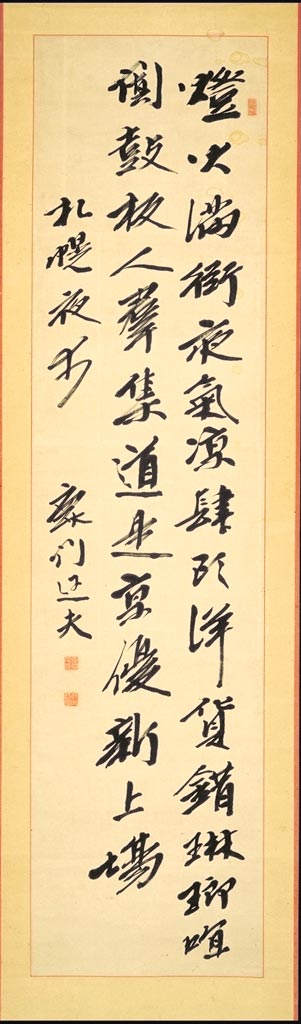 燈火滿街夜氣凉肆頭洋貨錯琳瑯喧
闐鼓板人羣集道是京優新上場
札幌夜步
迂夫